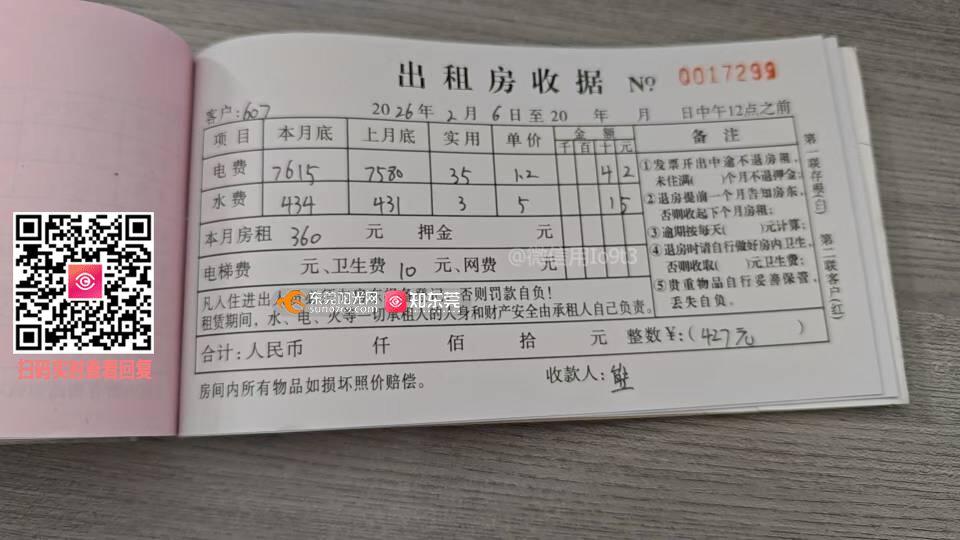 出租房收据 No 0017299
客户:607 2026年2月6日至20 年 月 日中午12点之前
项目 本月底 上月底 实用 单价 金额 千百十元 备注
电费 7615 7580 35 1.2 42
水费 434 431 3 5 15
本月房租 360 元 押金 元
电梯费 元、卫生费 10 元、网费 元
凡入住进出人 否则罚款自负!
租赁期间,水、电、火等一切承租人的人身和财产安全由承租人自己负责。
合计:人民币 仟 佰 拾 元 整数¥:(427元)
房间内所有物品如损坏照价赔偿。 收款人:熊
①发票开出中途不退房租,
未住满( )个月不退押金;
②退房提前一个月告知房东,
否则收起下个月房租;
③逾期按每天( )元计算;
④退房时请自行做好房内卫生,
否则收取( )元卫生费;
⑤贵重物品自行妥善保管,
丢失自负。
第一联存根(白) 第二联客户(红)
@微信用户1o9t3
东莞阳光网 知东莞
sun0769.com
扫码实时查看回复